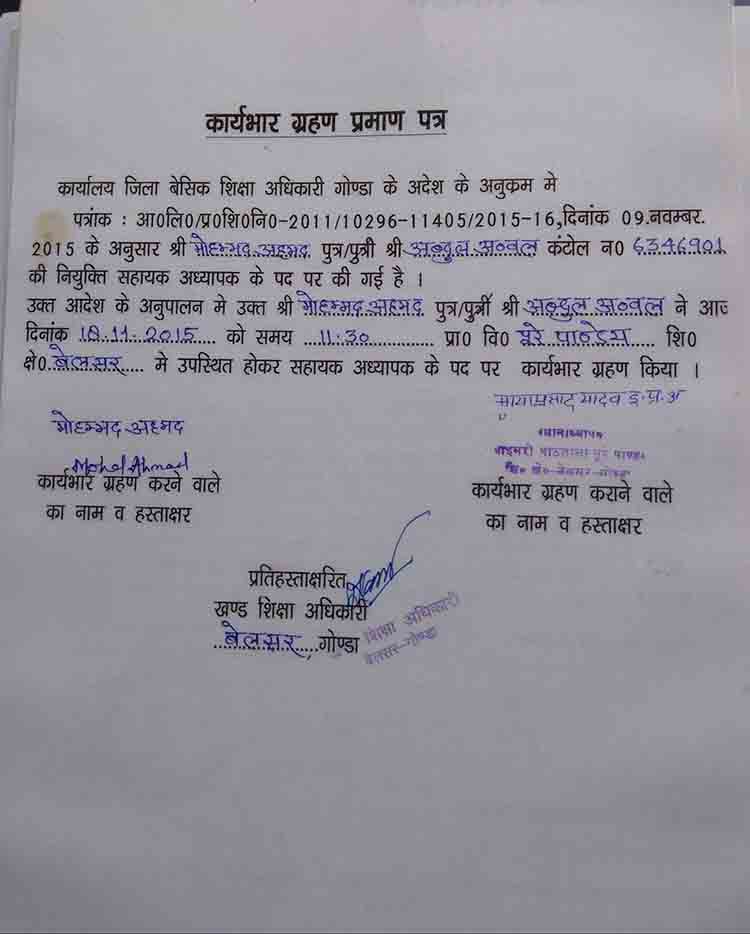 कार्यभार ग्रहण प्रमाण पत्र
कार्यालय जिला बेसिक शिक्षा अधिकारी गोण्डा के अदेश के अनुकम मे
पत्रांक : आ0लि0/प्र0शि0नि0-2011/10296-11405/2015-16,दिनांक 09.नवम्बर.
2015 के अनुसार श्री मोहम्मद अहमद पुत्र/पुत्री श्री अब्दुल अव्वल कंटोल न0 6346901
की नियुक्ति सहायक अध्यापक के पद पर की गई है ।
उक्त आदेश के अनुपालन मे उक्त श्री मोहम्मद अहमद पुत्र/पुत्री श्री अब्दुल अव्वल ने आज
दिनांक 18.11.2015 को समय 11:30 प्रा0 वि0 पूरे पाण्डेय शि0
क्षे0 बेलसर मे उपस्थित होकर सहायक अध्यापक के पद पर कार्यभार ग्रहण किया ।
मायाप्रसाद यादव इ.प्र.अ
मोहम्मद अहमद
प्रधानाध्यापक
Mohd Ahmad
कार्यभार ग्रहण करने वाले
का नाम व हस्ताक्षर
कार्यभार ग्रहण कराने वाले
का नाम व हस्ताक्षर
प्रतिहस्ताक्षरित
खण्ड शिक्षा अधिकारी
बेलसर, गोण्डा
शिक्षा अधिकारी
बेलसर-गोण्डा